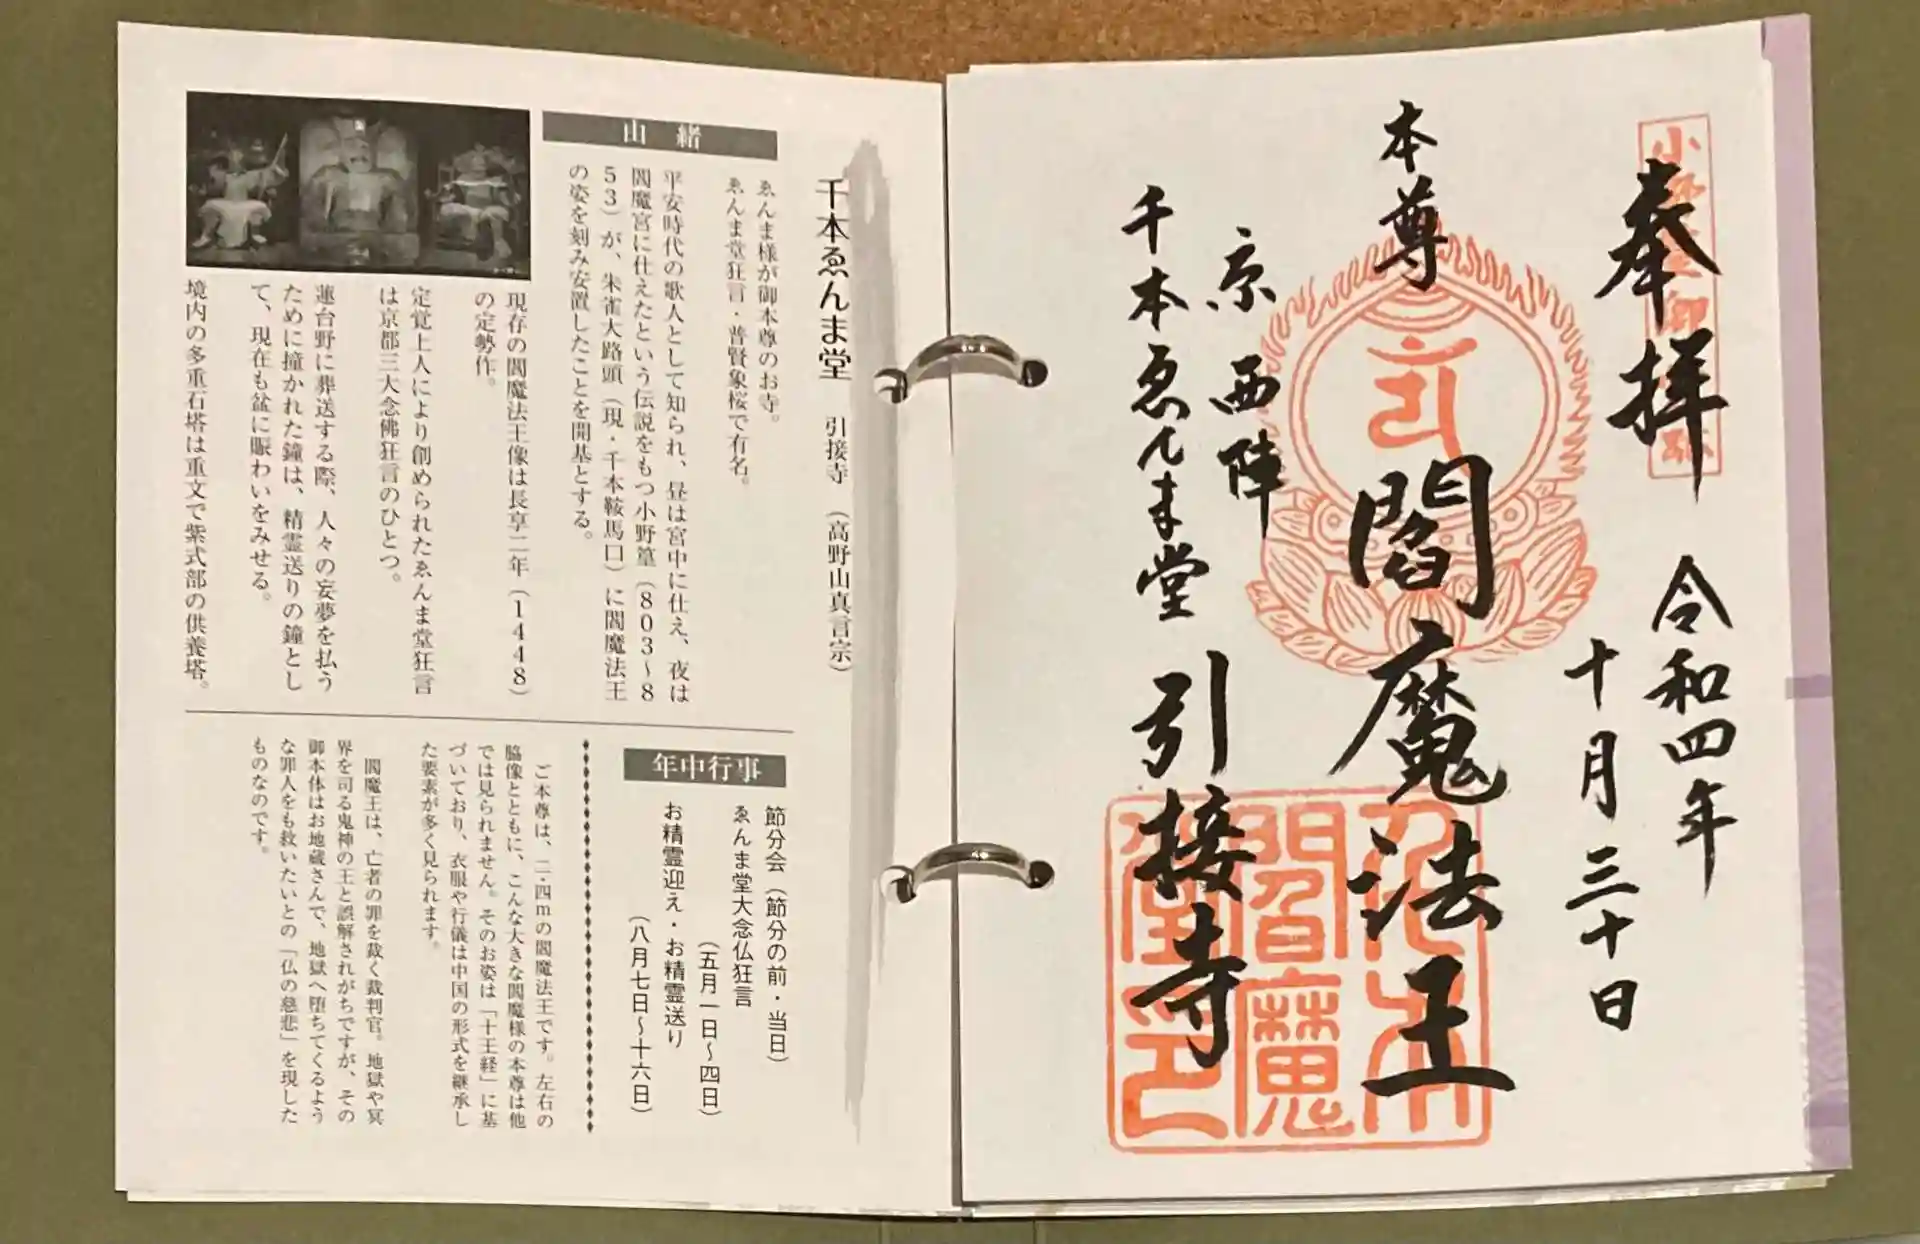 奉拝
令和四年
十月三十日
本尊
閻魔法王
京西陣
千本ゑんま堂
引接寺
閻魔
千本ゑんま堂 引接寺 (高野山真言宗)
由緒
ゑんま様が御本尊のお寺。
ゑんま堂狂言・普賢象桜で有名。
平安時代の歌人として知られ、昼は宮中に仕え、夜は
閻魔宮に仕えたという伝説をもつ小野篁(803〜8
53)が、朱雀大路頭(現・千本鞍馬口)に閻魔法王
の姿を刻み安置したことを開基とする。
現存の閻魔法王像は長享二年(1448)
の定勢作。
定覚上人により創められたゑんま堂狂言
は京都三大念佛狂言のひとつ。
蓮台野に葬送する際、人々の妄夢を払う
ために撞かれた鐘は、精霊送りの鐘とし
て、現在も盆に賑わいをみせる。
境内の多重石塔は重文で紫式部の供養塔。
年中行事
節分会(節分の前・当日)
ゑんま堂大念仏狂言
(五月一日〜四日)
お精霊迎え・お精霊送り
(八月七日〜十六日)
ご本尊は、二・四mの閻魔法王です。左右の
脇像とともに、こんな大きな閻魔様の本尊は他
では見られません。そのお姿は「十王経」に基
づいており、衣服や行儀は中国の形式を継承し
た要素が多く見られます。
閻魔王は、亡者の罪を裁く裁判官。地獄や冥
界を司る鬼神の王と誤解されがちですが、その
御本体はお地蔵さんで、地獄へ堕ちてくるよう
な罪人をも救いたいとの「仏の慈悲」を現した
ものなのです。